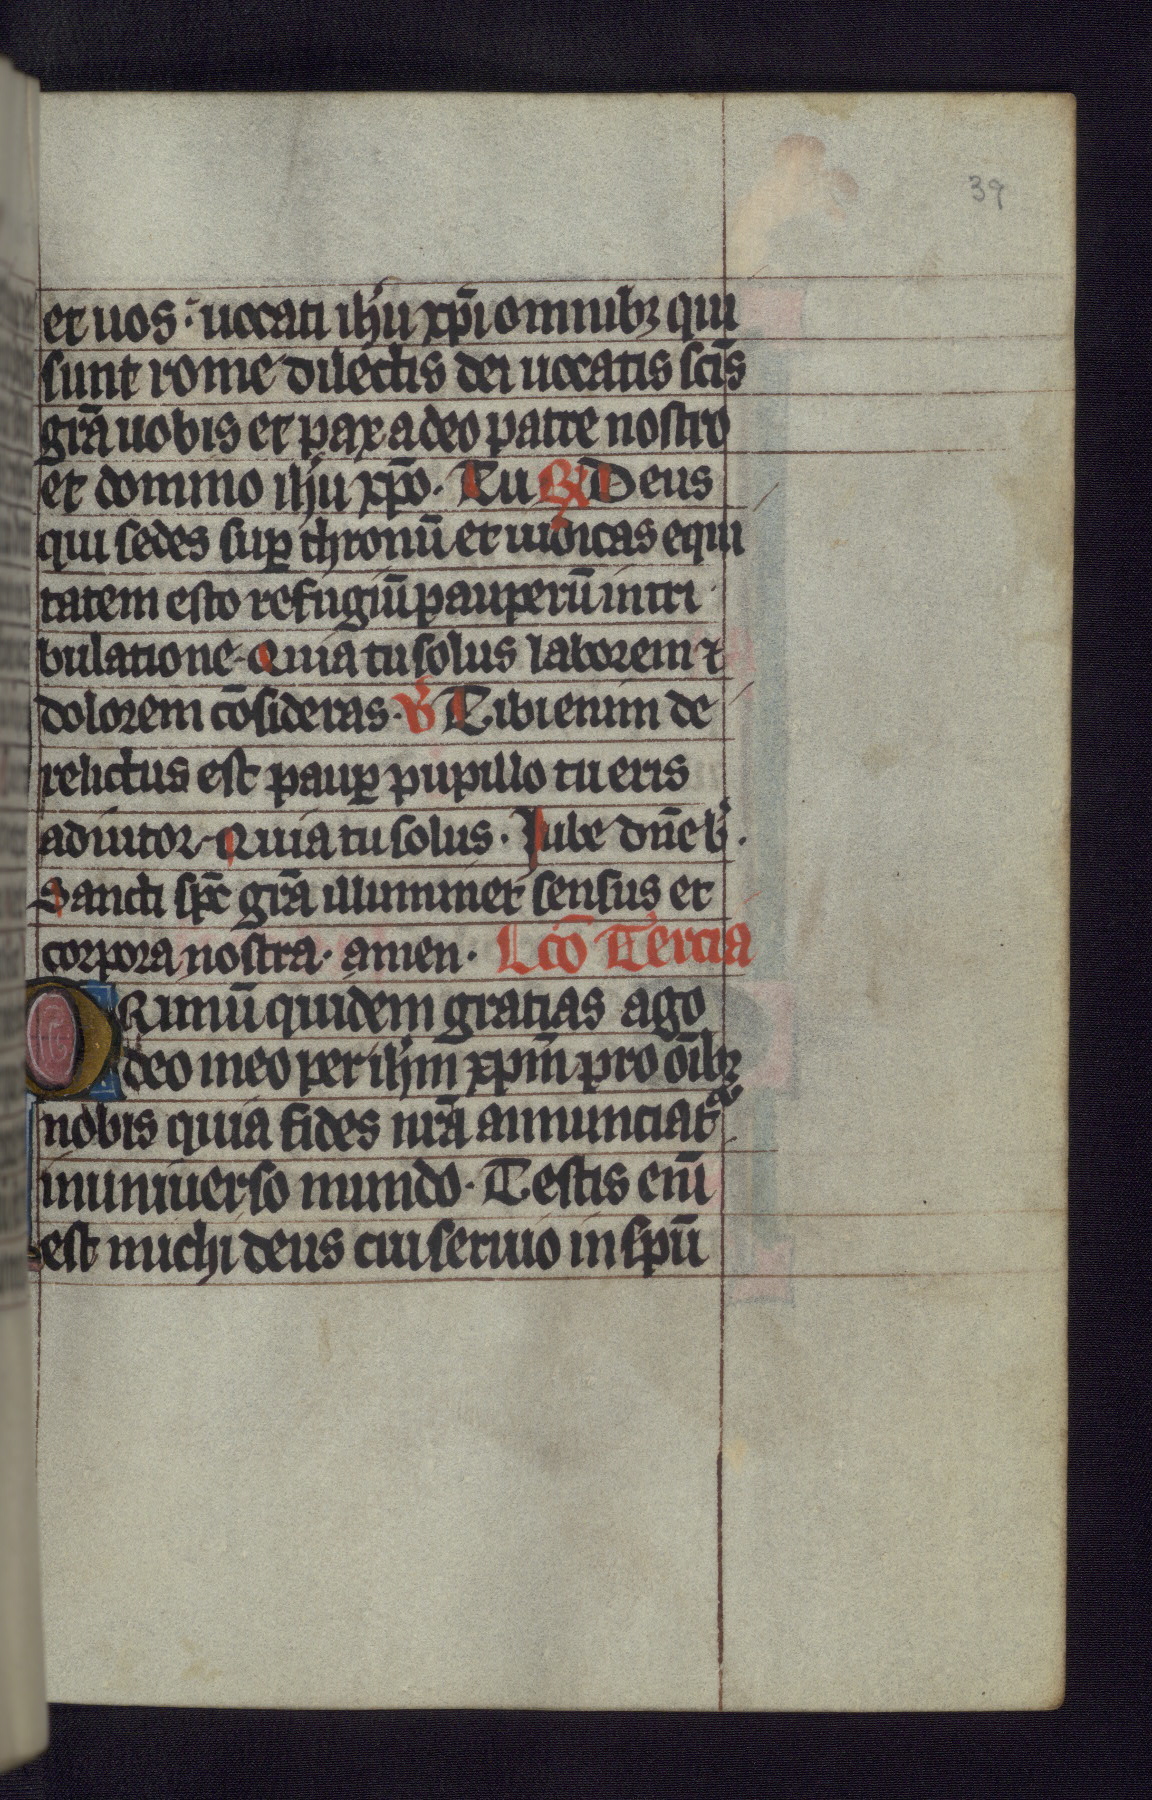 39
et uos· uocati ihu xpi omnibꝫ qui
sunt rome dilectis dei uocatis scis̄
grā uobis et pax a deo patre nostro
et domino ihū xp̄o· Tu ℟ Deus
qui sedes suꝑ thronū et iudicas equi
tatem esto refugiū pauperū in tri
bulatione· Quia tu solus laborem ⁊
dolorem cōsideras· ℣ Tibi enim de
relictus est pauꝑ pupillo tu eris
adiutor· Quia tu solus· Iube dn̄e b̄·
Sancti spc̄ grā illuminet sensus et
corpora nostra· amen· Lc̄o Tercia
PRimū quidem gratias ago
deo meo per ihm̄ xpm̄ pro oībꝫ
nobis quia fides nrā annunciat᷑
in uniuerso mundo· Testis eni̅
est michi deus cui seruio in spū